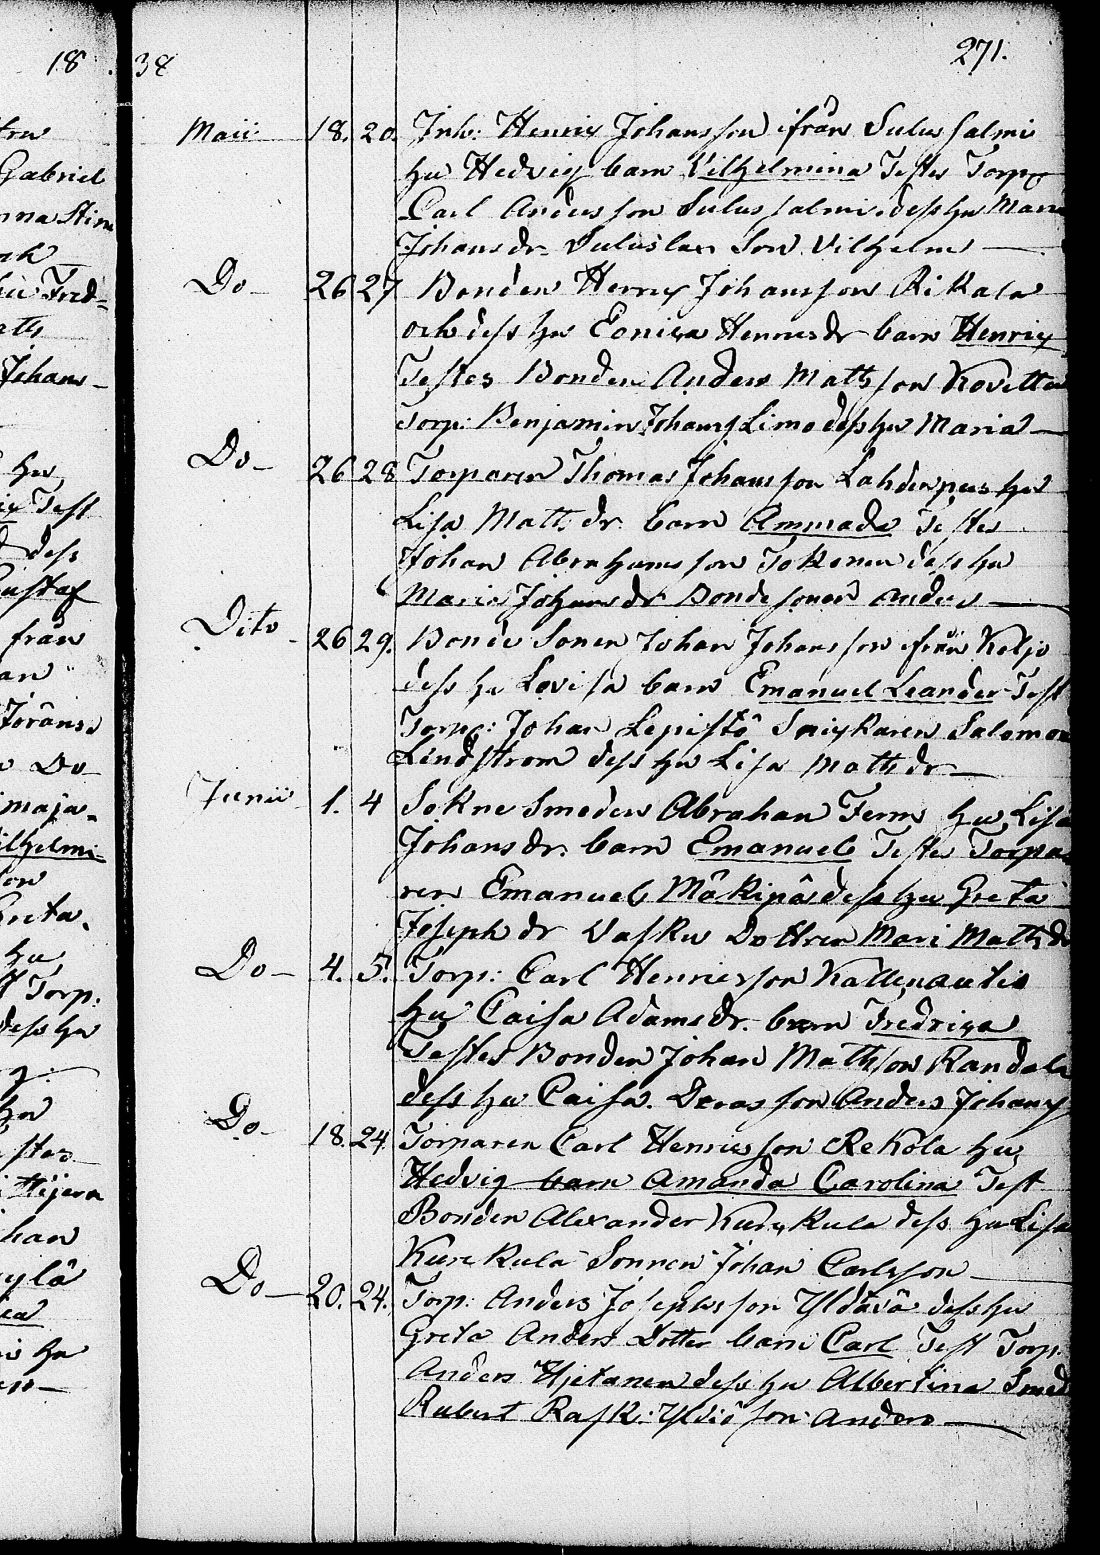 18
tru
Gabriel
nna Stin
och
Fred=
atts
Johans-
hu
Test
dess
Gustaf
från
an
Jöráns.
Do
maja-
ilhelmi-
son
Greta.
hu
Torp.
dess hu
hu
stes
Hijera
han
kylä
hu
38
271.
Maii 18. 20. Inh: Henric Johansson ifrån Sulus salmi
hu Hedvig barn Vilhelmina Testes Torp
Carl Andersson Sulus salmi dess hu Maria
Johans dr Suluslax Son Vilhelm
Do 26 27 Bonden Henric Johansson Rikala
och dess hu Henricsdr barn Henric
Testes Bonden Anders Matsson
Torp: Benjamin Johans Limo dess hu Maria
Do 26 28 Torparen Thomas Johansson hu
Lisa Matt dr barn Ammada Testes
Johan Abrahamsson Jokenen dess hu
Maria Johansdr Bondesonen Anders
Dito 26 29. Bonde Sonen Johan Johansson ifrån Koljo
dess hu Lovisa barn Emanuel Leander Test
Torp: Johan Lepistö Salomon
Lindström dess hu Lisa Mathsdr
Junii 1. 4 Sokne Smeden Abraham Ferm hu Lisa
Johans dr. barn Emanuel Testes Torpa
ren Emanuel Mäkipä dess hu Greta
Joseph dr Vasku Dottren Mari Maths dr
Do 4. 5. Torp: Carl Henricsson Kallenautio
hu Caisa Adams dr. barn Fredrica
Testes Bonden Johan Mathsson Randala
dess hu Caisa. son Anders Johans
Do 18. 24 Torparen Carl Henricsson Rekola hu
Hedvig barn Amanda Carolina Test
Bonden Alexander Kurikkala dess hu Lisa
Kurikkala Sonnen Johan Carlsson
Do 20. 24. Torp: Anders Josephsson dess hu
Greta Anders Dotter barn Carl Test Torp.
Anders Hjetanen dess hu Albertina Smed
Robert Rask: son Anders